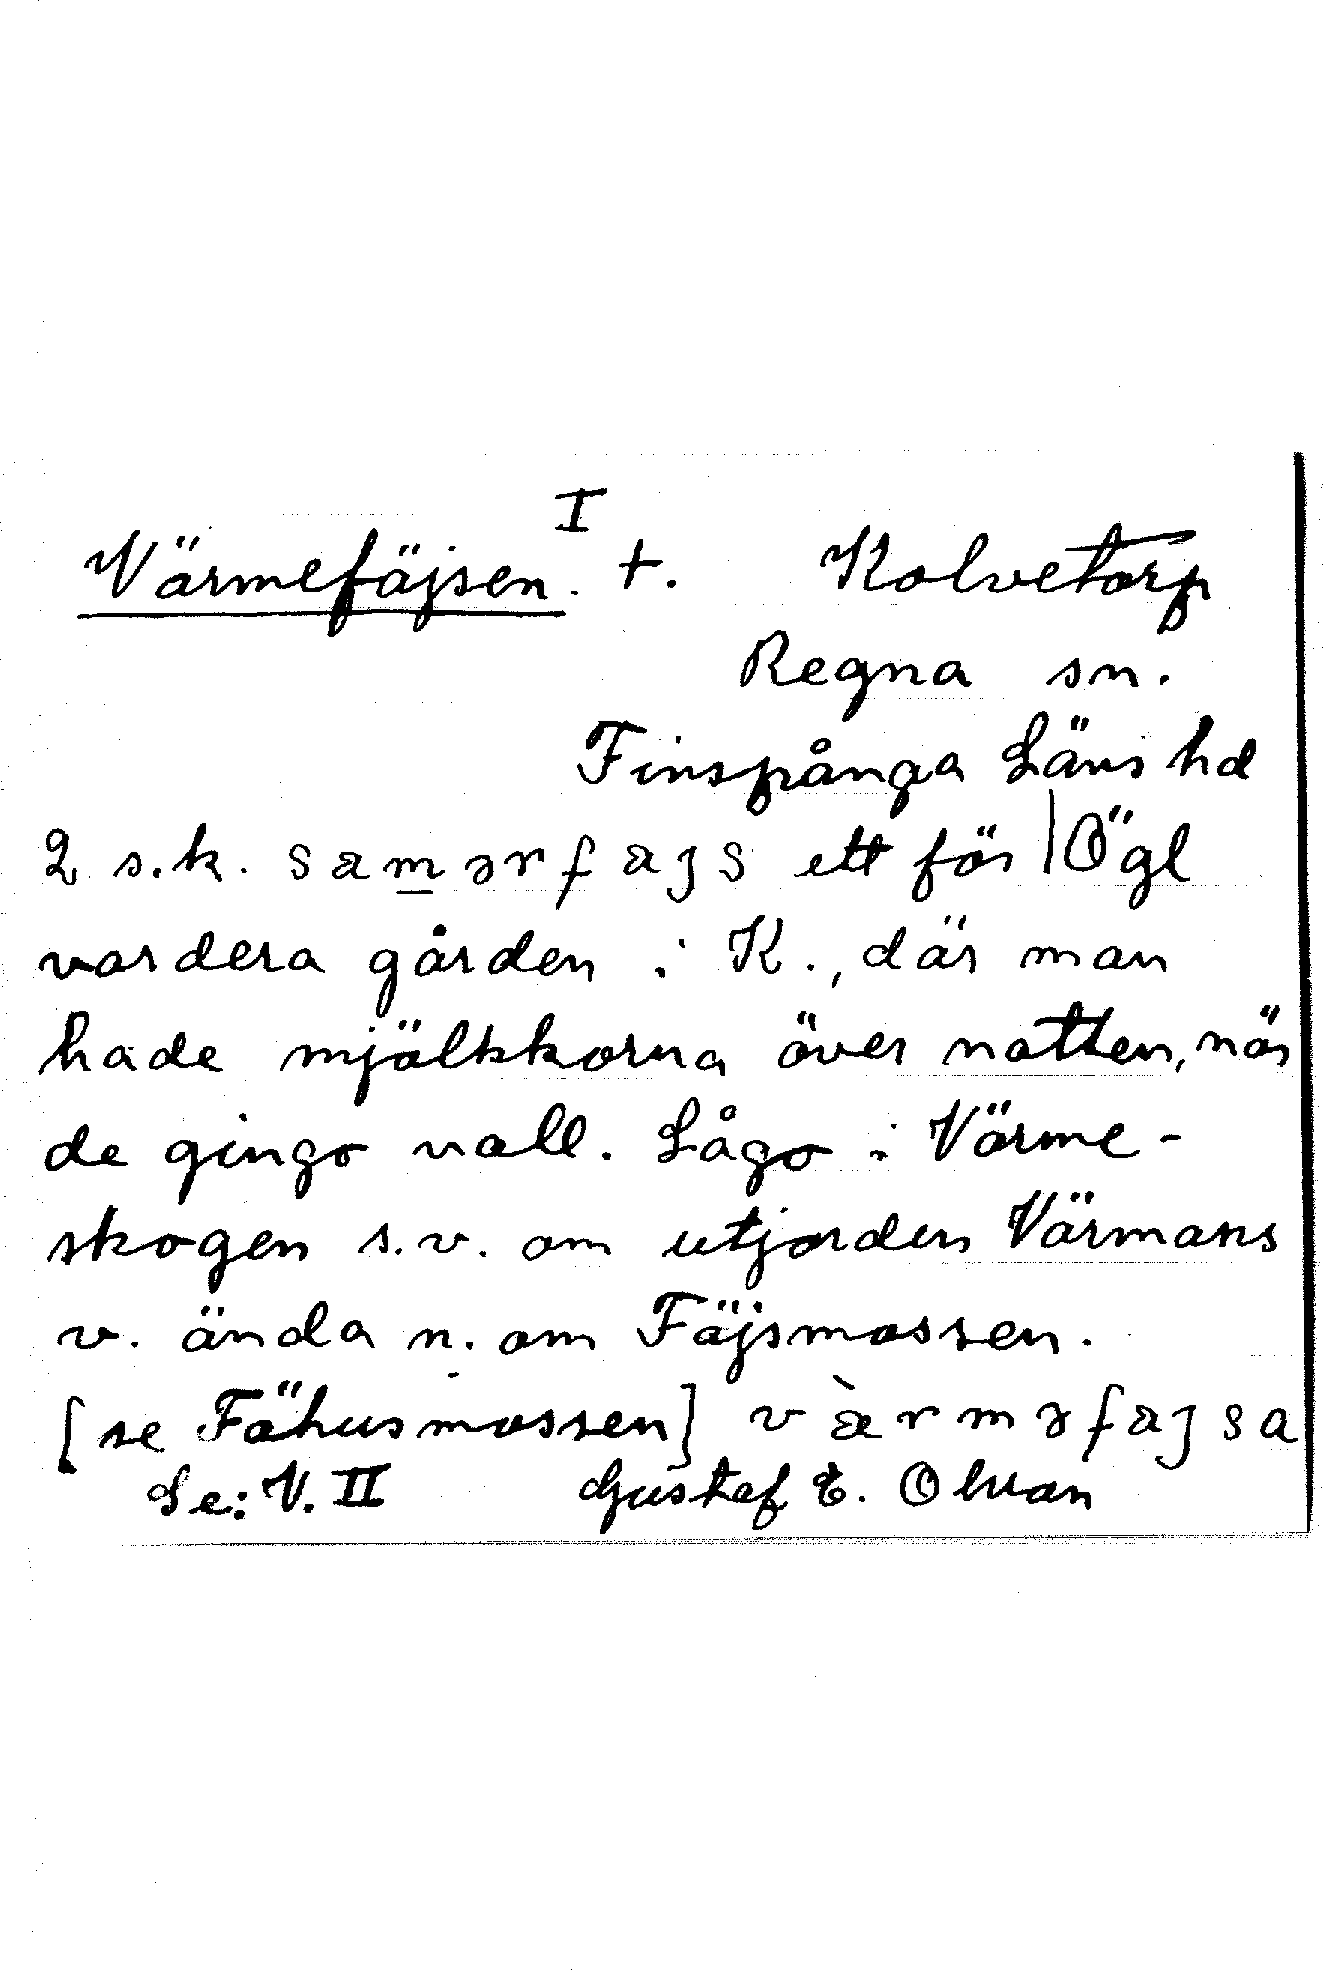 I
Värmefäjsen. +. Kolvetorp
Regna sn.
Finspånga Läns hd
2 s.k. samərfajs ett för | Ögl
vardera gården i K., där man
hade mjölkkorna över natten, när
de gingo vall. Lågo i Värme-
skogen s.v. om utjorden Värmans
v. ända n. om Fäjsmossen.
[se Fähusmossen] værməfajsa
Se: V. II Gustaf E. Olsson